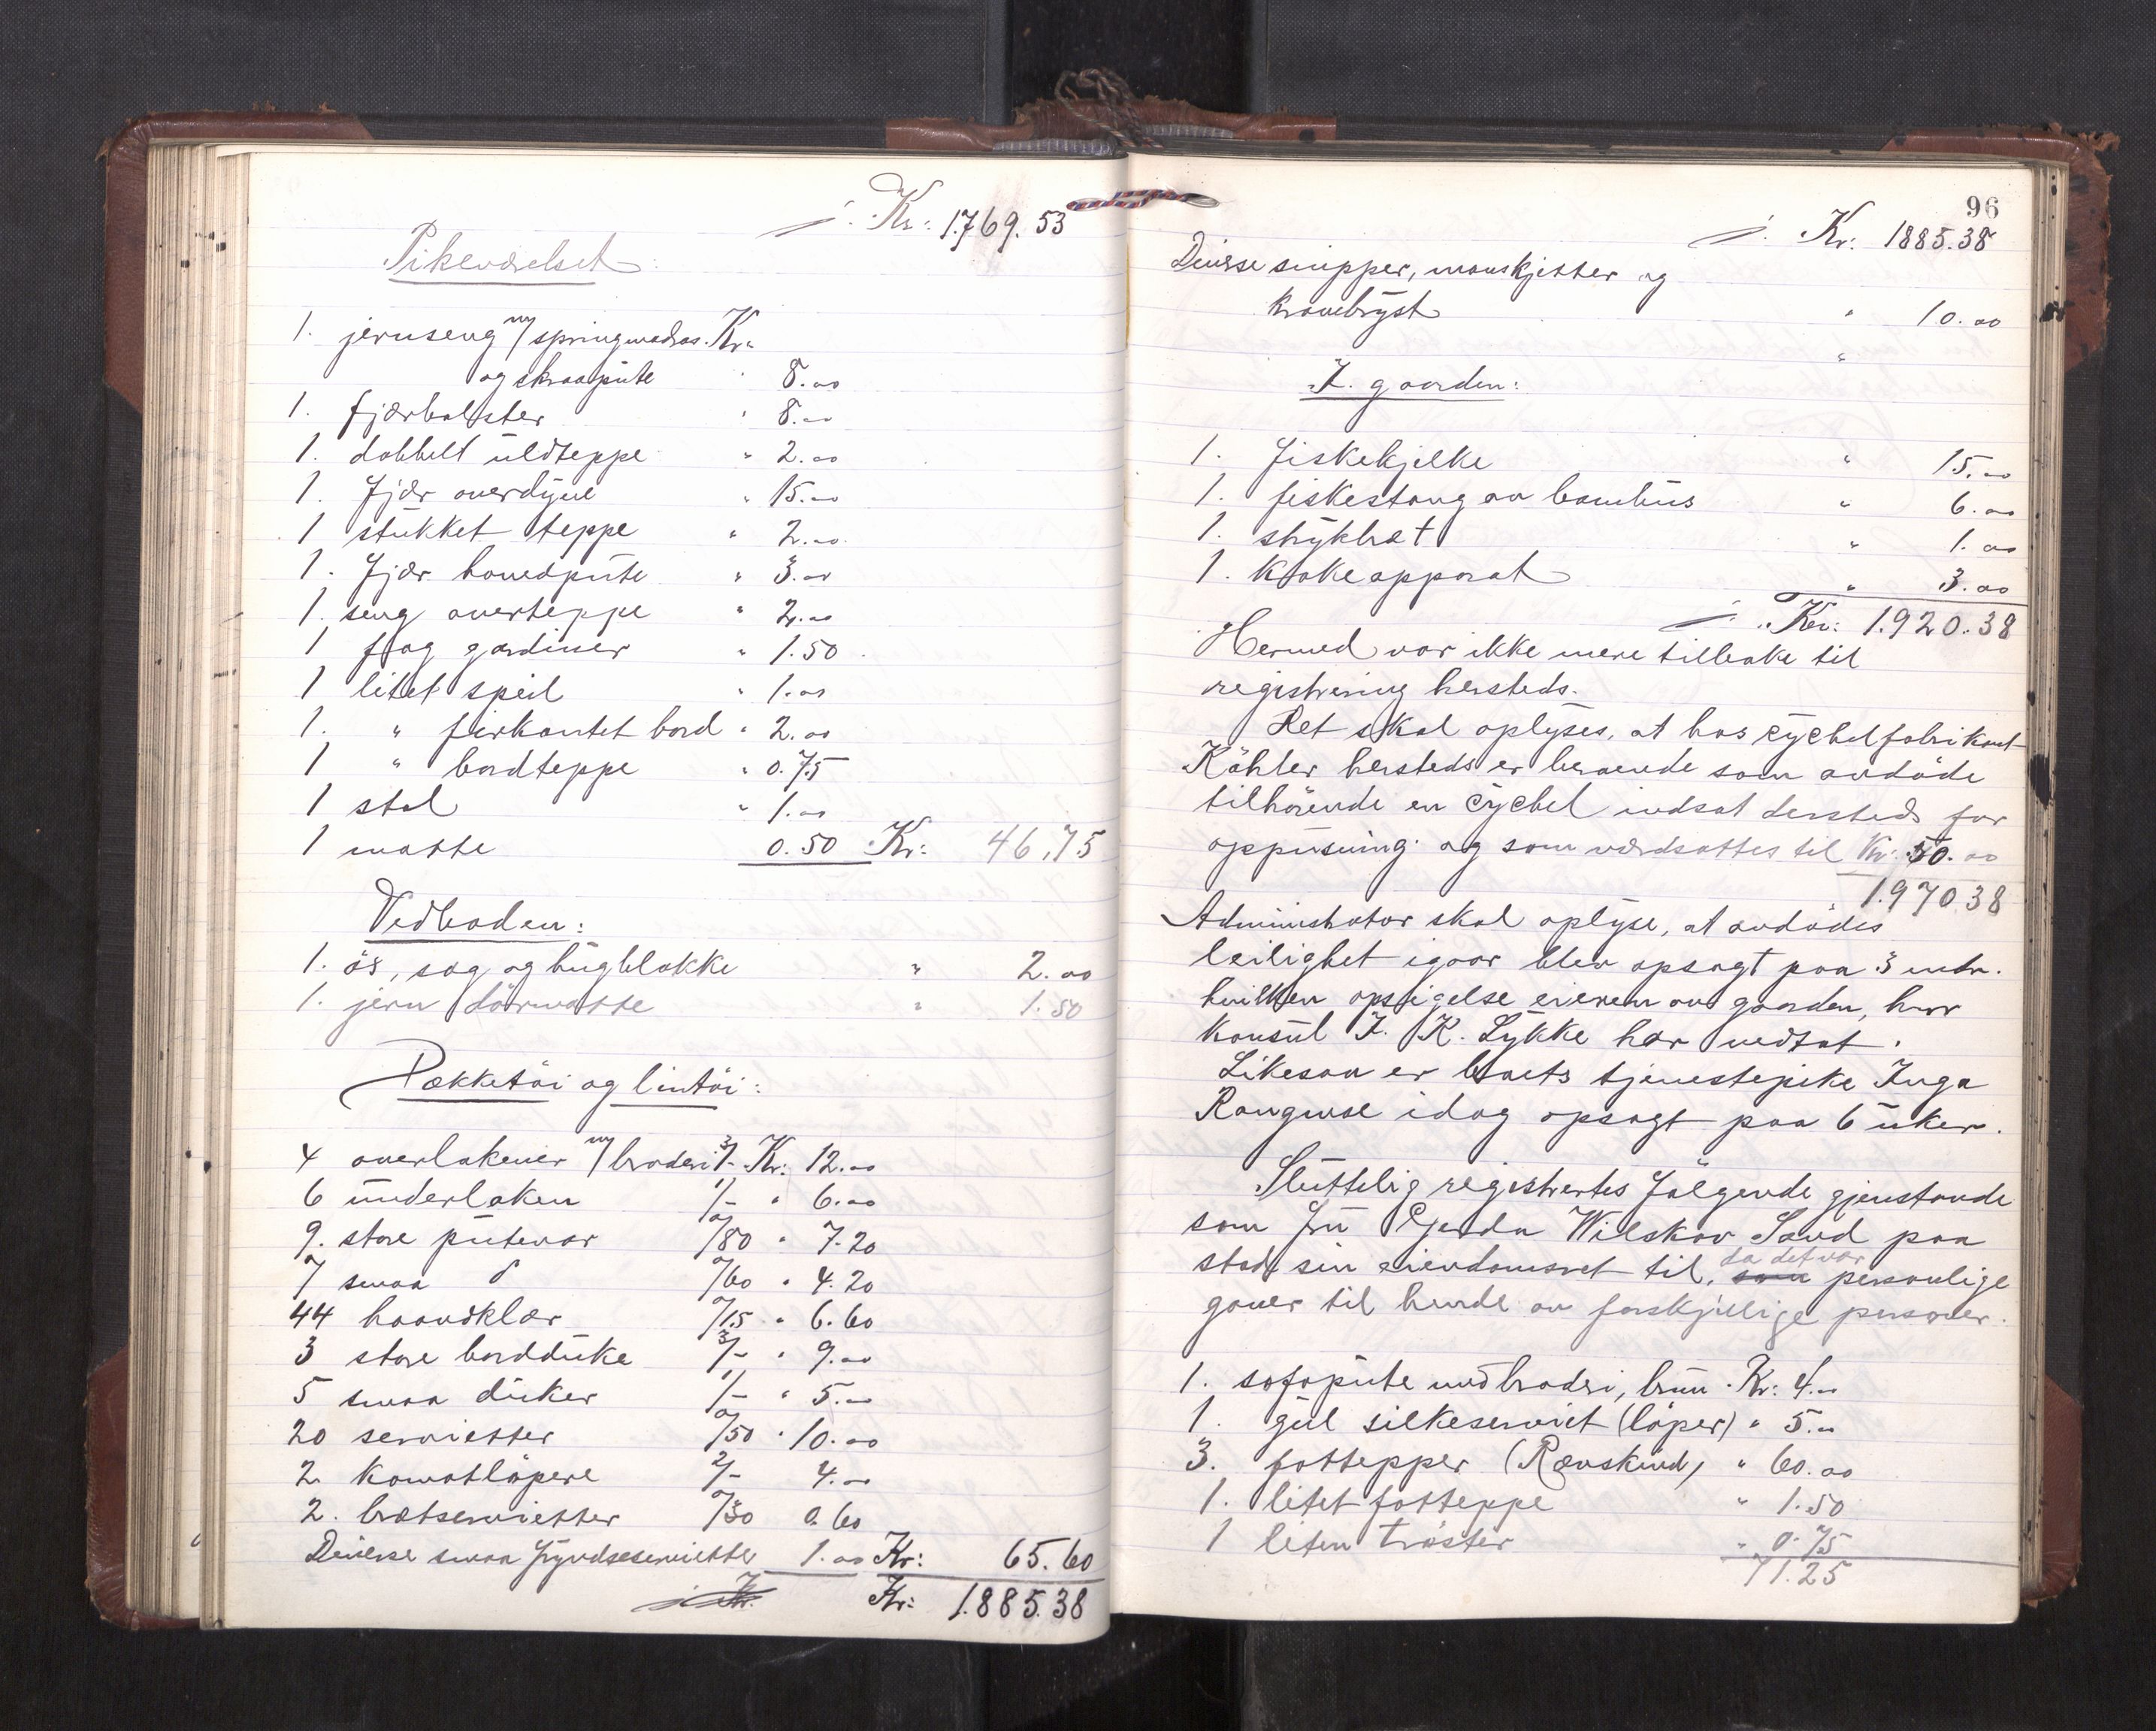 ÷ Kr: 1.769.53
Pikeværelset:
1. jernseng m/ springmadras. Kr:
og skraapute " 8.00
1. fjærbolster " 8.00
1. dobbelt uldteppe " 2.00
1. Fjær overdyne " 15.00
1 stukket teppe " 2.00
1. Fjær hovedpute " 3.00
1. seng overteppe " 2.00
1 fag gardiner " 1.50
1 litet speil " 1.00
1. " firkantet bord " 2.00
1 " bordteppe " 0.75
1 stol " 1.00
1 matte 0.50 Kr: 46,75
Vedboden:
1. øs, sag og hugblokke " 2.00
1. jern dörmatte " 1.50
Dækketöi og lintöi:
4 overlakener m/ broderi 3/- Kr: 12.00
6 underlaken 1/- " 6.00
9. store putevar 0/80 " 7.20
7 smaa d 0/60 " 4.20
44 haandklær 0/15 " 6.60
3 store bordduke 3/- " 9.00
5 smaa duker 1/- " 5.00
20 servietter 0/50 " 10.00
2 komotlöpere 2/- 4.00
2. brætservietter 0/30 0.60
Diverse smaa pyndteservietter 1.00 Kr: 65.60
÷ Kr. Kr: 1.885.38
96
÷ Kr: 1885.38
Diverse snipper, manskjetter og
kravebryst " 10.00
"
I gaarden:
1. Fiskekjelke " 15.00
1. fiskestang av bambus " 6.00
1. strykbræt " 1.00
1. kokeapparat " 3.00
÷ Kr: 1.920.38
Hermed var ikke mere tilbake til
registrering hersteds.
Det skal oplyses, at hos cyckelfabrikant
Köhler hersteds er beroende som avdöde
tilhörende en cyckel indsat dersteds for
oppusning og som værdsattes til Kr: 50.00
1.970.38
Administrator skal oplyse, at avdödes
leilighet igaar blev opsagt paa 3 mdr.
hvilken opsigelse eieren av gaarden, herr
konsul I. K. Lykke har vedtat.
Likesaa er boets tjenestepike Inga
Rangnese idag opsagt paa 6 uker.
Sluttelig registrertes fölgende gjenstande
som fru Gjerda Wilskov Sand paa
stod sin eiendomsret til, som da det var personlige
gaver til hende av forskjellige personer.
1. sofapute med broderi, brun. Kr: 4.00
1. gul silkeserviet (löper) " 5.00
3. fottepper (Rævskind) " 60.00
1. litet fotteppe " 1.50
1 liten tröster " 0.75
71.25